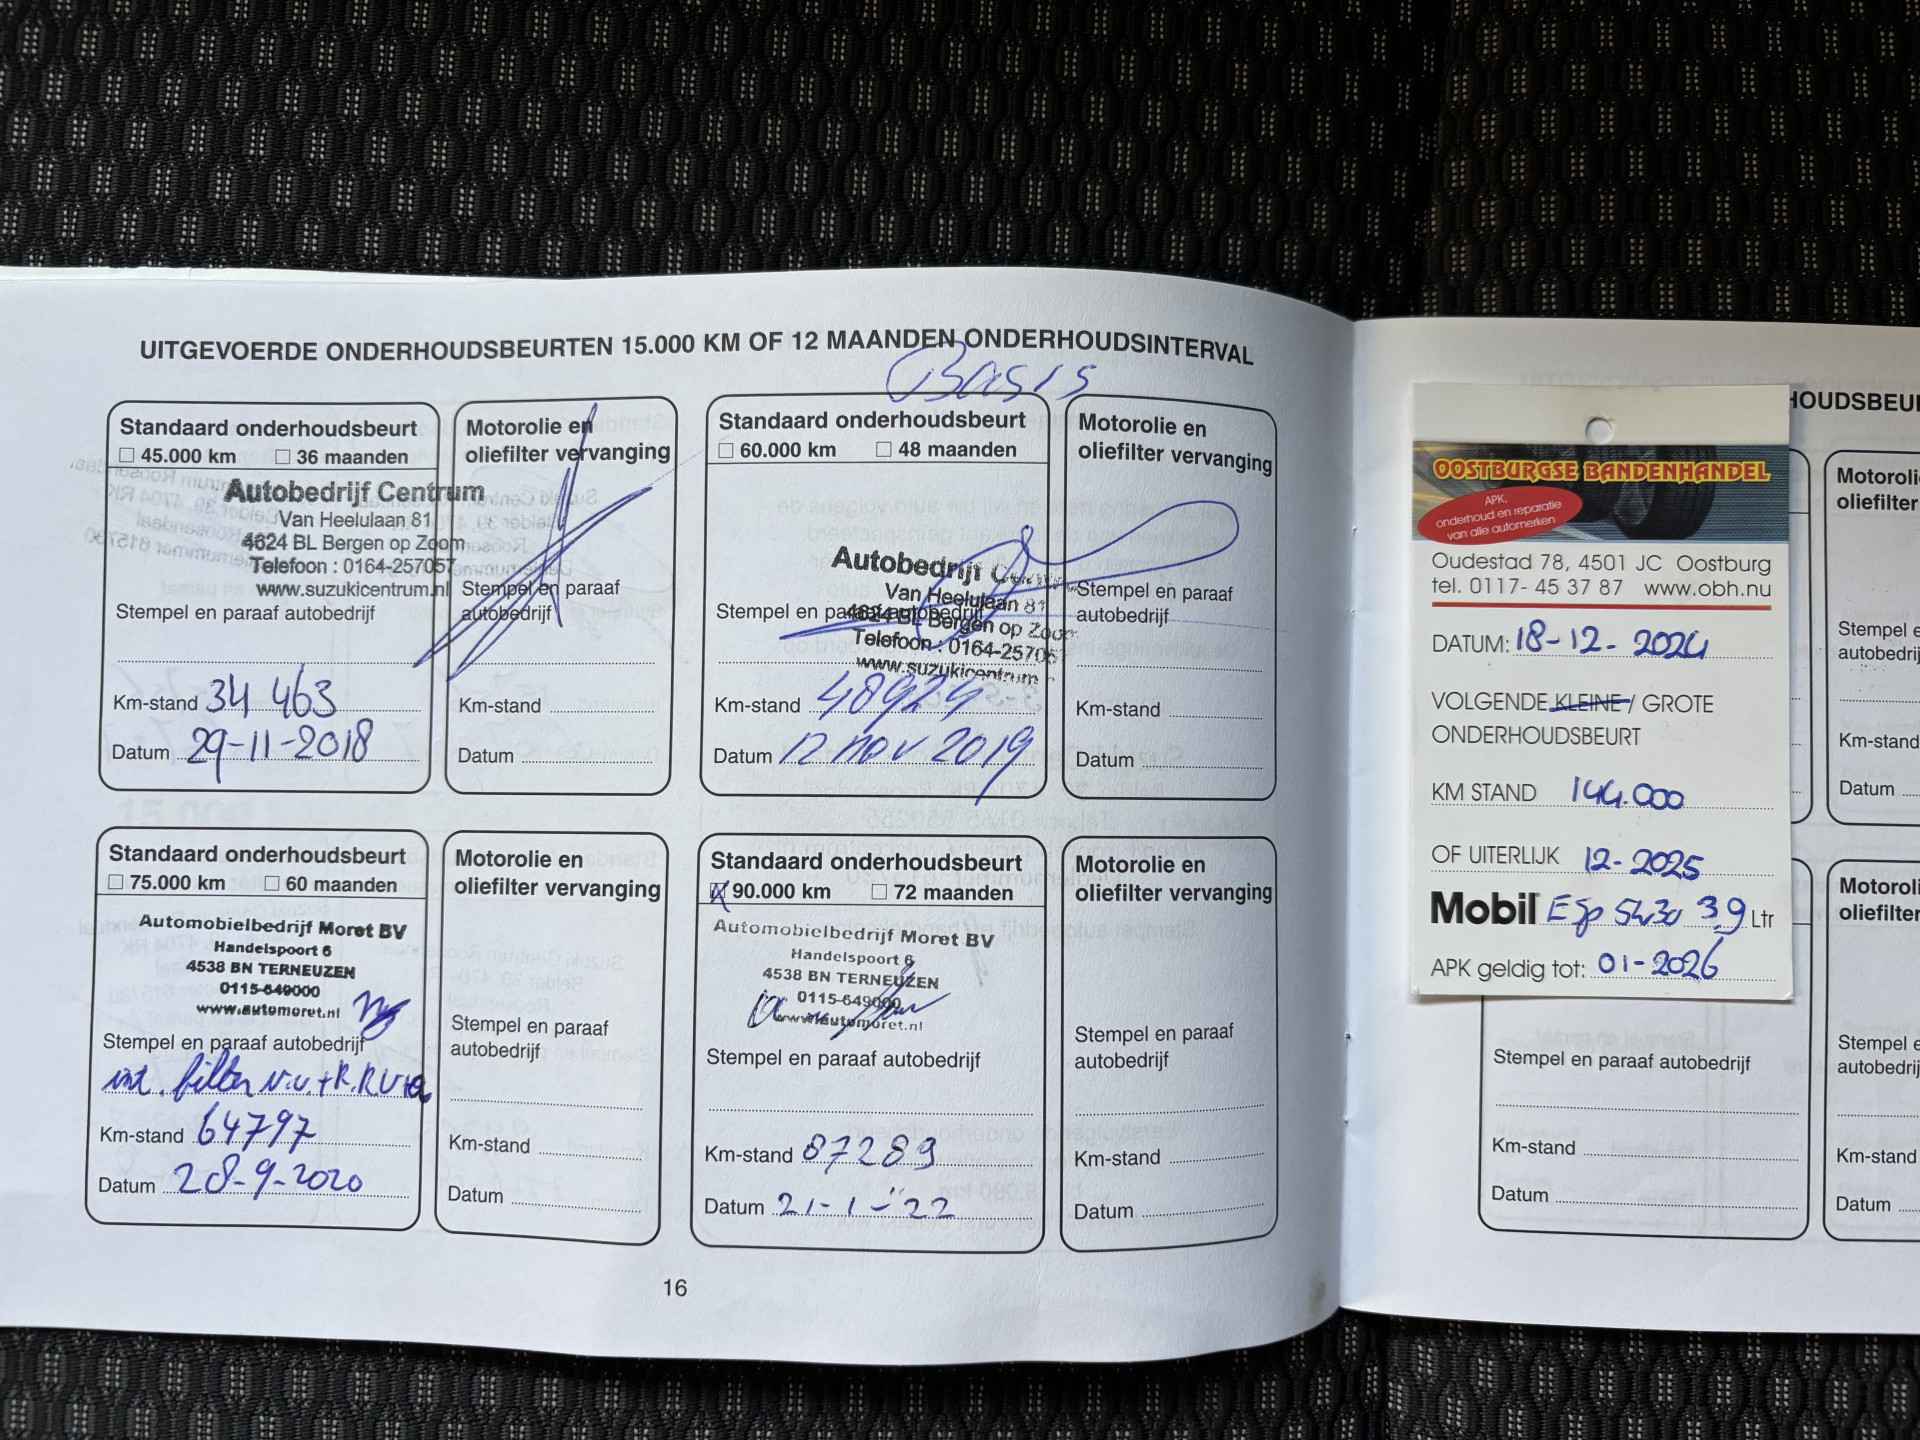 UITGEVOERDE ONDERHOUDSBEURTEN 15.000 KM OF 12 MAANDEN ONDERHOUDSINTERVAL
Basis
Standaard onderhoudsbeurt
45.000 km 36 maanden
Autobedrijf Centrum
Van Heelulaan 81
4624 BL Bergen op Zoom
Telefoon : 0164-257057
www.suzukicentrum.nl
Stempel en paraaf autobedrijf
Km-stand 34 463
Datum 29-11-2018
Motorolie en
oliefilter vervanging
Stempel en paraaf
autobedrijf
Km-stand
Datum
Standaard onderhoudsbeurt
60.000 km 48 maanden
Autobedrijf
Van Heelulaan 81
Stempel en paraaf autobedrijf
4624 BL Bergen op Zoom
Telefoon : 0164-25705
www.suzukicentrum
Km-stand 48929
Datum 12 nov 2019
Motorolie en
oliefilter vervanging
Stempel en paraaf
autobedrijf
Km-stand
Datum
Standaard onderhoudsbeurt
75.000 km 60 maanden
Automobielbedrijf Moret BV
Handelspoort 6
4538 BN TERNEUZEN
0115-649000
www.automoret.nl
Stempel en paraaf autobedrijf
int. filter
Km-stand 64797
Datum 28-9-2020
Motorolie en
oliefilter vervanging
Stempel en paraaf
autobedrijf
Km-stand
Datum
Standaard onderhoudsbeurt
90.000 km 72 maanden
Automobielbedrijf Moret BV
Handelspoort 6
4538 BN TERNEUZEN
0115-649000
www.automoret.nl
Stempel en paraaf autobedrijf
Km-stand 87289
Datum 21-1-'22
Motorolie en
oliefilter vervanging
Stempel en paraaf
autobedrijf
Km-stand
Datum
16
OOSTBURGSE BANDENHANDEL
APK,
onderhoud en reparatie
van alle automerken
Oudestad 78, 4501 JC Oostburg
tel. 0117- 45 37 87 www.obh.nu
DATUM: 18-12-2024
VOLGENDE KLEINE / GROTE
ONDERHOUDSBEURT
KM STAND 144.000
OF UITERLIJK 12-2025
Mobil Esp 5w30 3.9 Ltr
APK geldig tot: 01-2026
Stempel en paraaf autobedrijf
Km-stand
Datum
HOUDSBEU
Motoroli
oliefilter
Stempel e
autobedrij
Km-stand
Datum
Motoroli
oliefilter
Stempel e
autobedrij
Km-stand
Datum